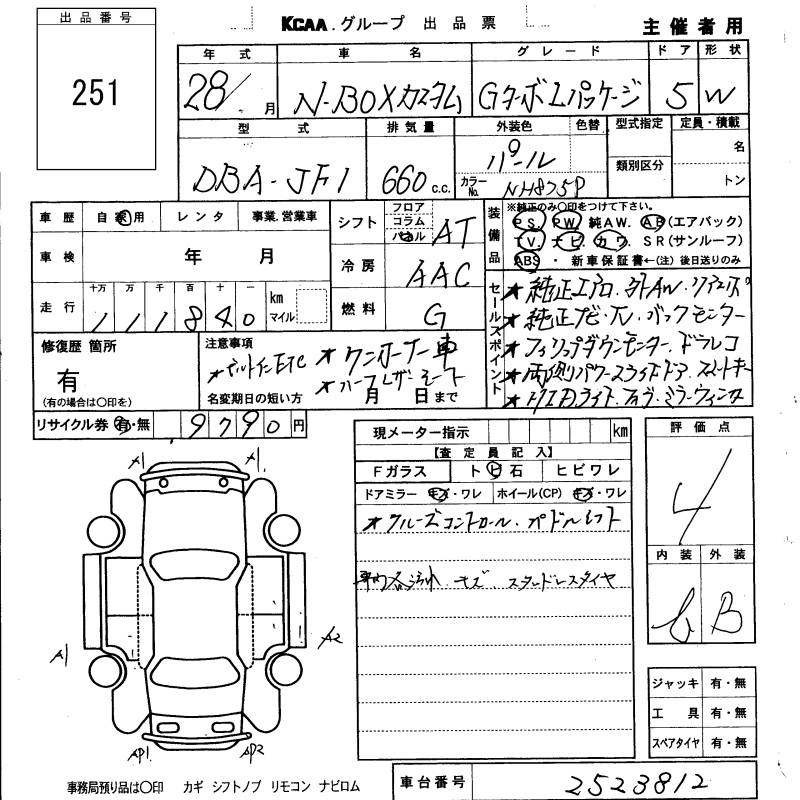 出品番号
251
KCAA.グループ 出品票
主催者用
年式 車名 グレード ドア 形状
28/ 月 N-BOXカスタム Gターボ Lパッケージ 5 W
型式 排気量 外装色 色替 型式指定 定員・積載
DBA-JF1 660 c.c. パール 名
カラーNo. NH875P 類別区分 トン
車歴 自家用 レンタ 事業.営業車
シフト フロア コラム パネル AT
装備品 ※純正のみ○印をつけて下さい。
PS. PW. 純AW. AB(エアバック)
TV. ナビ. カワ. SR(サンルーフ)
ABS ・ 新車保証書←(注)後日送りのみ
車検 年 月
冷房 AAC
走行 十万 万 千 百 十 一 km マイル
1 1 1 8 4 0
燃料 G
セールスポイント
★純正エアロ.外AW.リアスポ
★純正ナビ・TV.バックモニター
★フィリップダウンモニター.ドラレコ
★両側パワースライドドア.スマートキー
★HIDライト.フォグ.ミラーウィンカ
修復歴 箇所
有
(有の場合は○印を)
注意事項
★ビルトインETC ★ワンオーナー車
★ハーフレザーシート
名変期日の短い方 月 日まで
リサイクル券 有・無 9790円
現メーター指示 km
【査定員記入】
Fガラス トビ石 ヒビワレ
ドアミラー キズ・ワレ ホイール(CP) キズ・ワレ
★クルーズコントロール.パドルシフト
車内各汚れ キズ スタッドレスタイヤ
評価点
4
内装 外装
B
A1 A1
A1 A2
AP1 AP2
ジャッキ 有・無
工具 有・無
スペアタイヤ 有・無
事務局預り品は○印 カギ シフトノブ リモコン ナビロム
車台番号 2523812